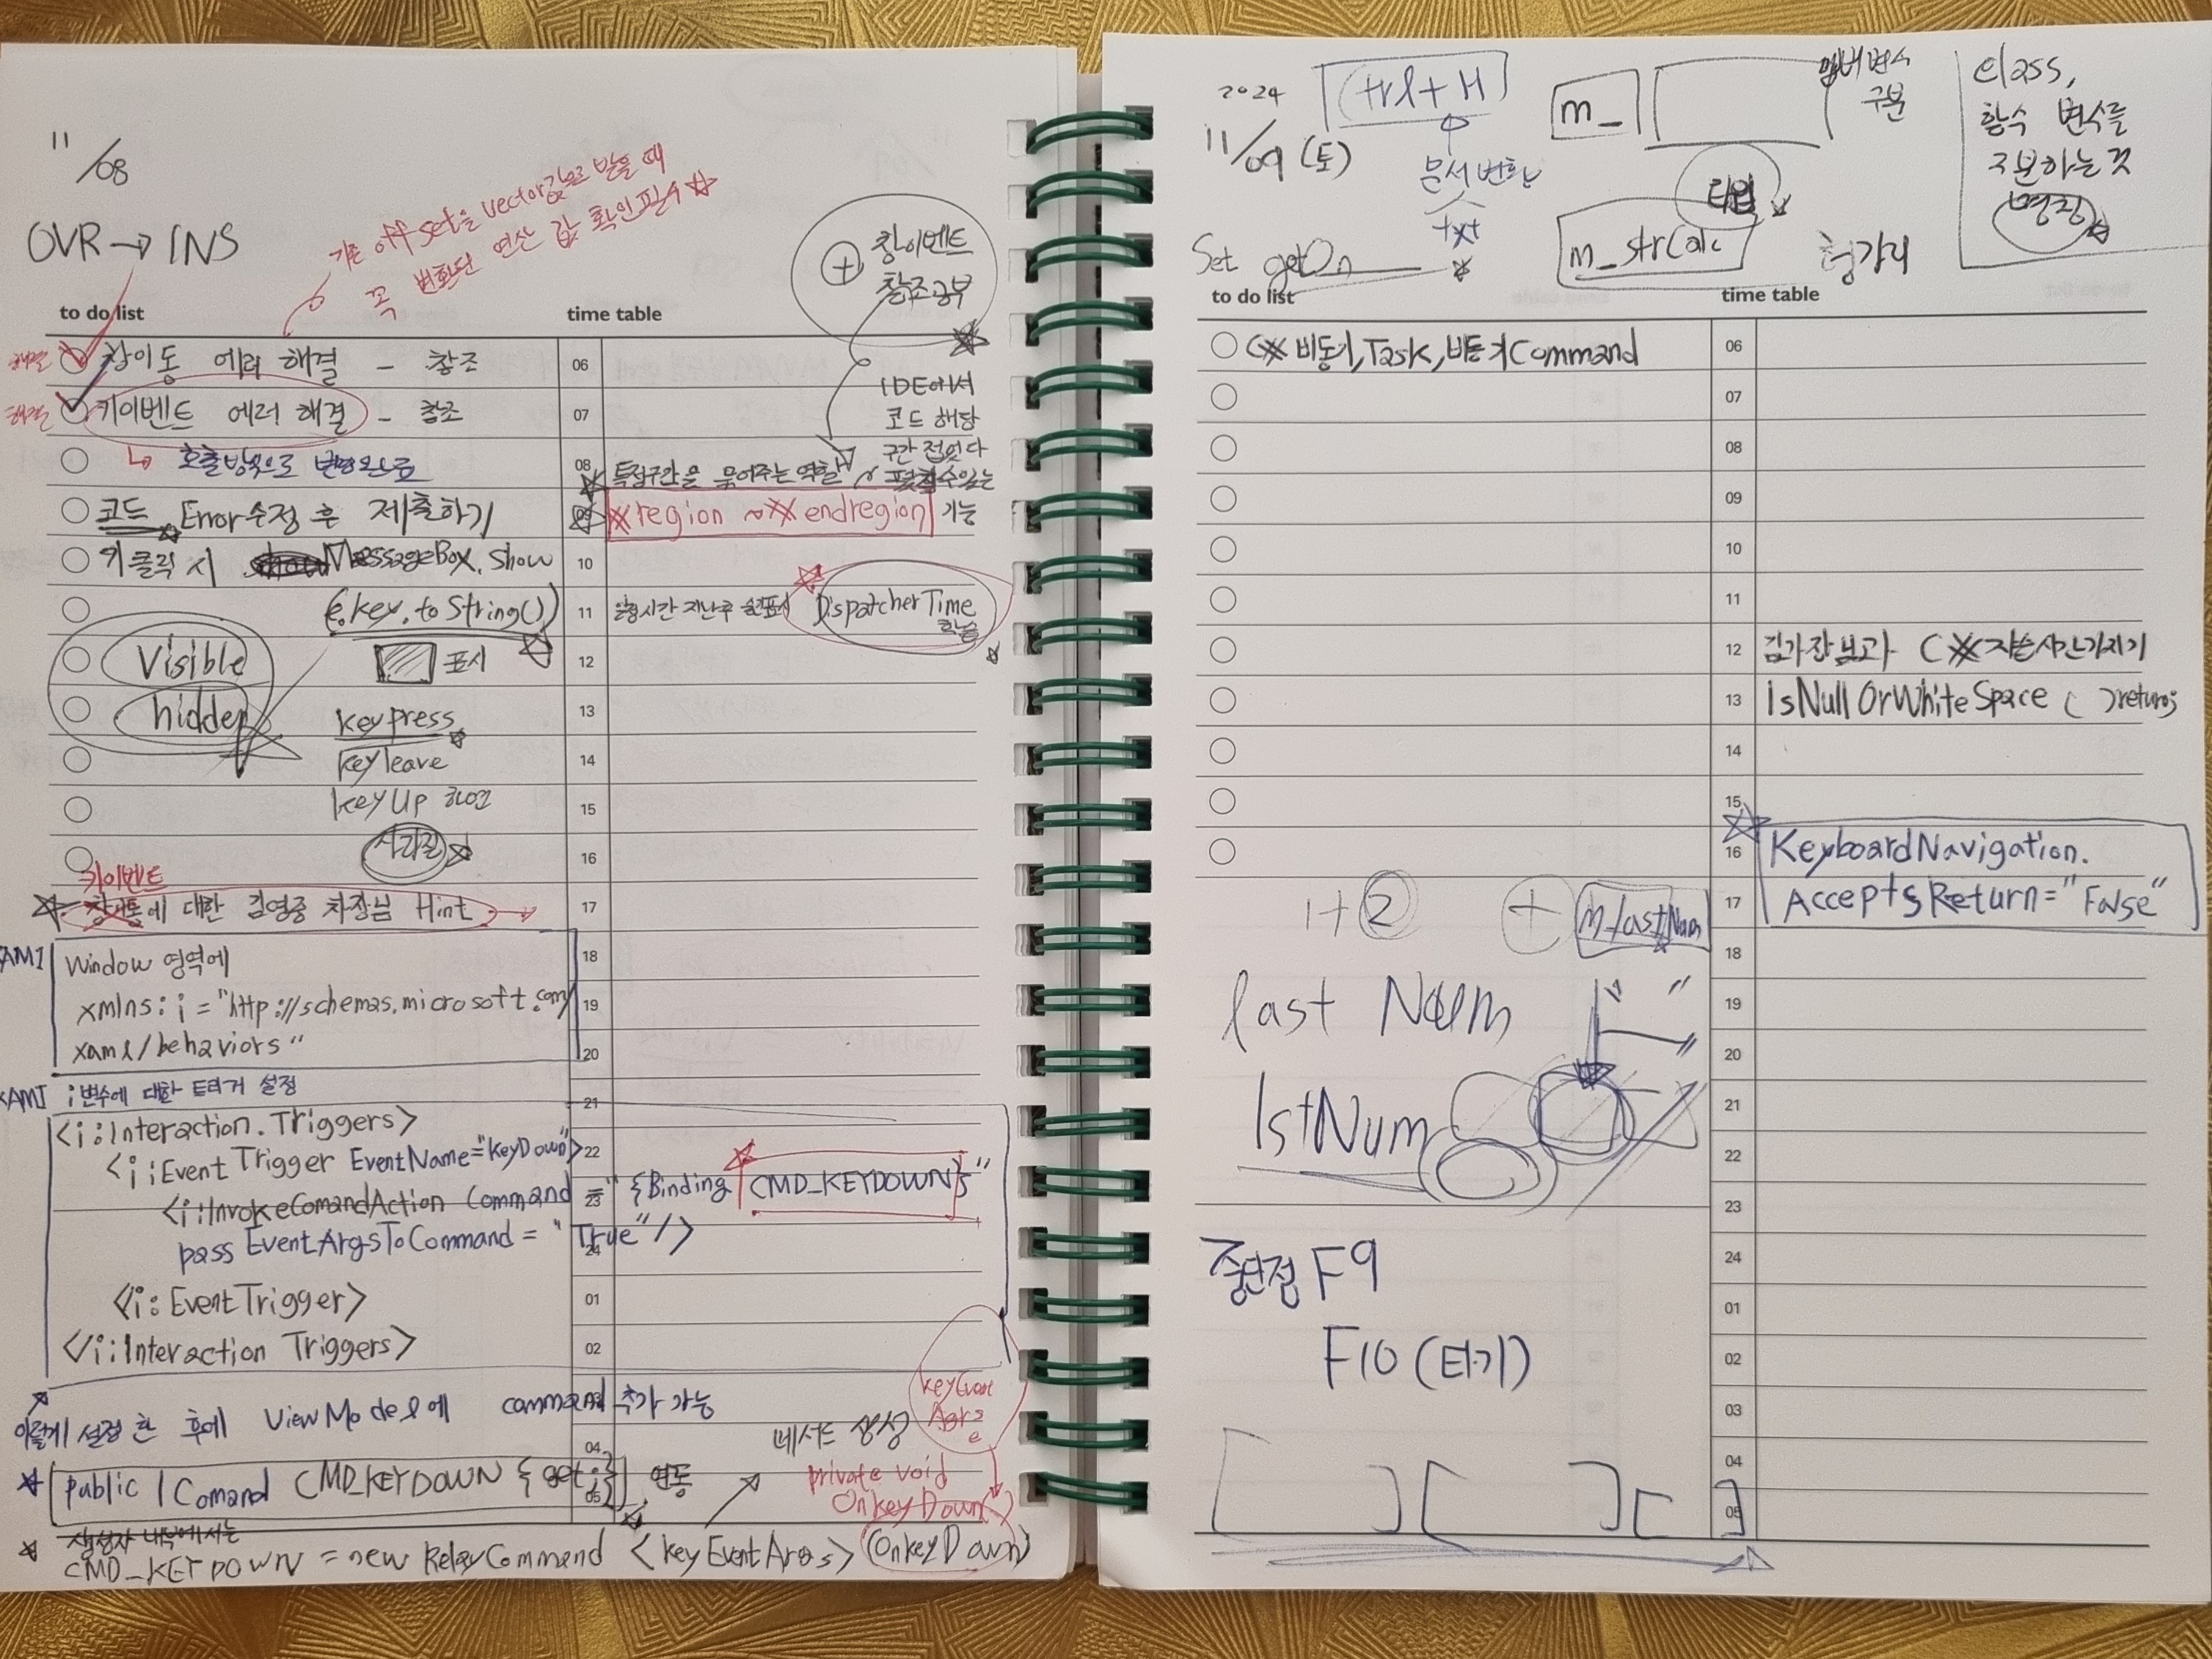 11/08
OVR → INS
기존 offset을 vector값으로 받을 때
꼭 변환된 연산 값 확인필수 ☆
+ 창이벤트
창조공부
to do list
time table
해결 창이동 에러 해결 - 창조
06
해결 키이벤트 에러 해결 - 창조
07
IDE에서
코드 해당
구간 접었다
↳ 호출방식으로 변경완료
08 특정구간을 묶어주는 역할
수있는
코드 Error수정 후 제출하기
09 #region ~ #endregion 기능
키 클릭 시 MessageBox.Show
10
(e.key.toString())
11 일정시간 지난후 DispatcherTime
학습
Visible
표시
12
hidden
keypress
13
keyleave
14
keyUp 하면
15
사라짐
16
키이벤트
에 대한 김영중 차장님 Hint →
17
AMl
Window 영역에
18
xmlns:i = "http://schemas.microsoft.com/
19
xaml/behaviors"
20
XAMl i변수에 대한 트리거 설정
21
<i:Interaction.Triggers>
<i:EventTrigger EventName="KeyDown">
22
<i:InvokeComandAction Command = "{Binding CMD_KEYDOWN}"
23
pass EventArgsToCommand = "True"/>
24
<i:EventTrigger>
01
</i:Interaction Triggers>
02
이렇게 설정 한 후에 ViewModel에 command 추가 가능
메서드 생성
04
private void
OnkeyDown( )
public ICommand CMD_KEYDOWN {get;} 연동
05
생성자 내부에서는
CMD_KEYDOWN = new RelayCommand <keyEventArgs> (OnkeyDown)
2024
11/09 (토)
Ctrl+H
문서 변환
txt
m_
멤버변수
구분
타입
Class,
함수 변수를
구분하는것
명칭
Set getOn
m_strCalc
헝가리
to do list
time table
C# 비동기, Task, 비동기Command
06
07
08
09
10
11
12 C#
13 IsNullOrWhiteSpace ( )return;
14
15
16 KeyboardNavigation.
17 AcceptsReturn="False"
1+2
+ m_lastNum
18
last Num
19
20
lstNum
21
22
23
중단점 F9
24
01
F10 (타기)
02
03
04
05